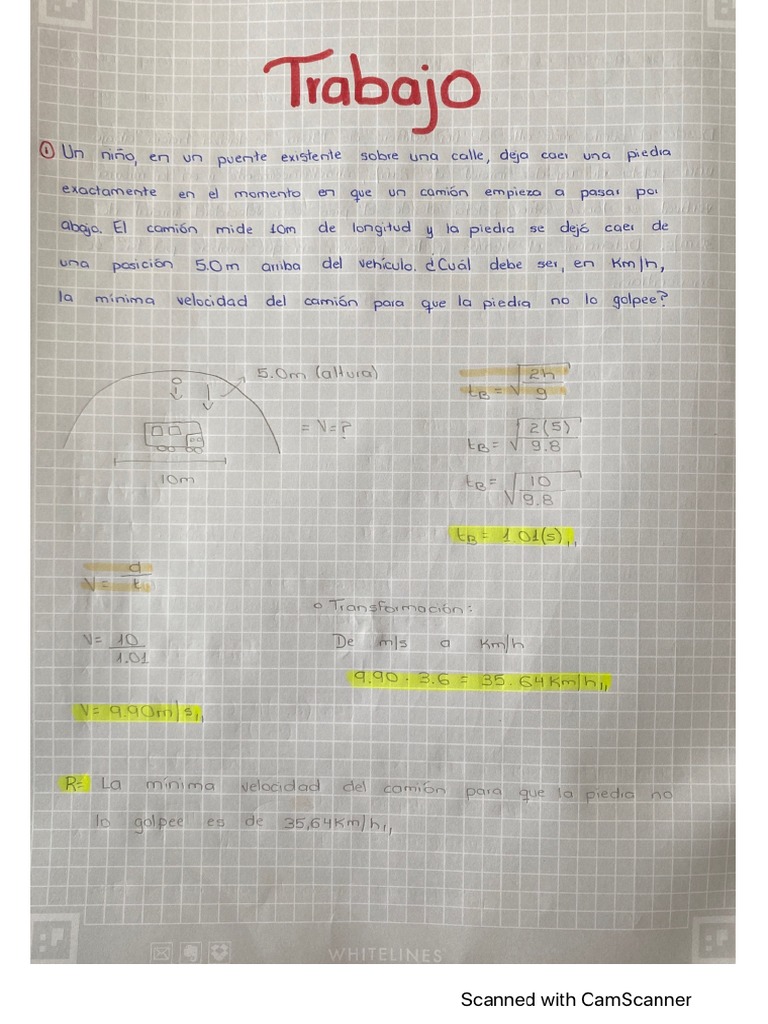 Trabajo
① Un niño, en un puente existente sobre una calle, deja caer una piedra
exactamente en el momento en que un camión empieza a pasar por
abajo. El camión mide 10m de longitud y la piedra se dejó caer de
una posición 5.0m arriba del vehículo. ¿Cuál debe ser, en Km/h,
la mínima velocidad del camión para que la piedra no lo golpee?
5.0m (altura)
= V=?
10m
tB = √2h/g
tB = √2(5)/9.8
tB = √10/9.8
tB = 1.01(s),,
V= d/t
V= 10/1.01
V= 9.90m/s,,
o Transformación:
De m/s a Km/h
9.90 · 3.6 = 35.64Km/h,,
R= La mínima velocidad del camión para que la piedra no
lo golpee es de 35,64Km/h,,
WHITELINES
Scanned with CamScanner